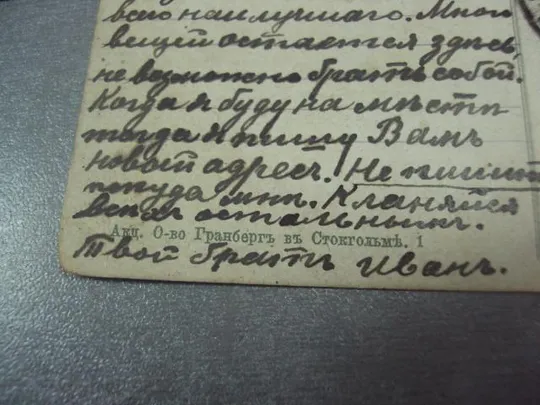 всего наилучшаго. Много
вещей остается здесь,
невозможно брать собой.
Когда я буду на мѣстѣ
тогда я пишу Вамъ
новой адресъ. Не пишит
покуда мнѣ. Кланяйся
всем остальнымъ.
Акц. О-во Гранбергъ въ Стокгольмѣ. 1
Твой братъ Иванъ.